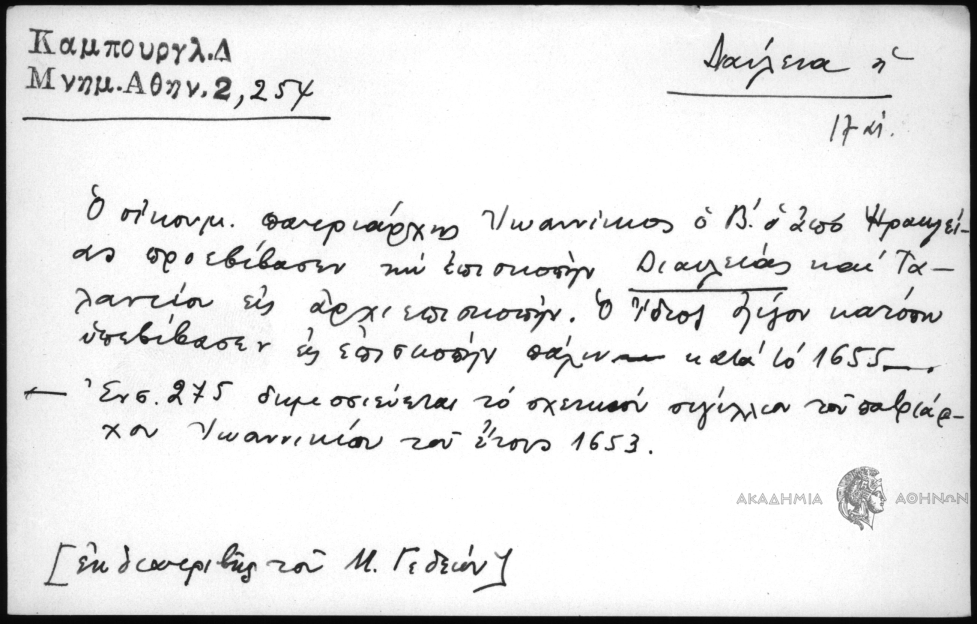 Καμπουργλ.Δ
Μνημ.Αθην.2, 254
Δαύλεια ἡ
17 αἰ.
Ὁ οἰκουμ. πατριάρχης Ἰωαννίκιος ὁ Β΄. ὁ ἀπό Ἡρακλεί-
ας προεβίβασεν τήν ἐπισκοπήν Διαυλείας καί Τα-
λαντίου εἰς ἀρχιεπισκοπήν. Ὁ ἴδιος ὀλίγον κατόπιν
ὑπεβίβασεν εἰς ἐπισκοπήν πάλιν — κατά τό 1655 —.
— Ἐν σ. 275 δημοσιεύεται τό σχετικόν σιγίλλιον τοῦ πατριάρ-
χου Ἰωαννικίου τοῦ ἔτους 1653.
ΑΚΑΔΗΜΙΑ ΑΘΗΝΩΝ
[ἐκ διατριβῆς τοῦ Μ. Γεδεών]